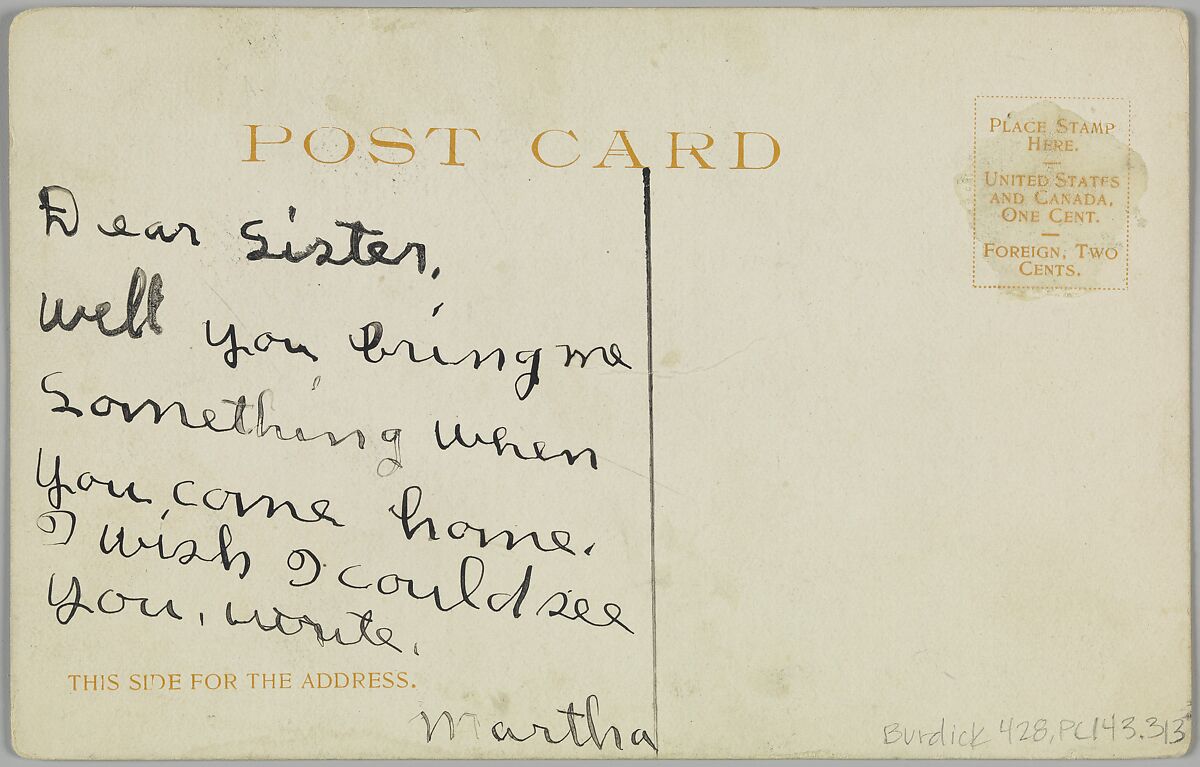 POST CARD
PLACE STAMP
HERE.
UNITED STATES
AND CANADA,
ONE CENT.
FOREIGN, TWO
CENTS.
Dear Sister,
Well you bring me
Something when
you come home.
I wish I could see
you, write.
THIS SIDE FOR THE ADDRESS.
Martha
Burdick 428, PC143.313